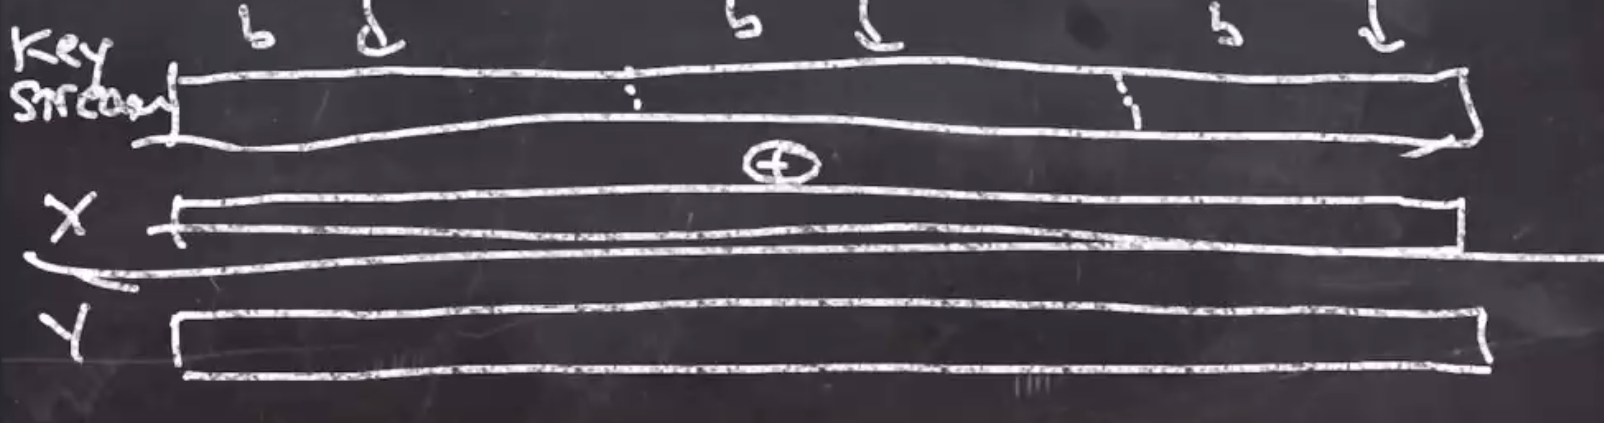 b b b
Key
Stream
⊕
X
Y